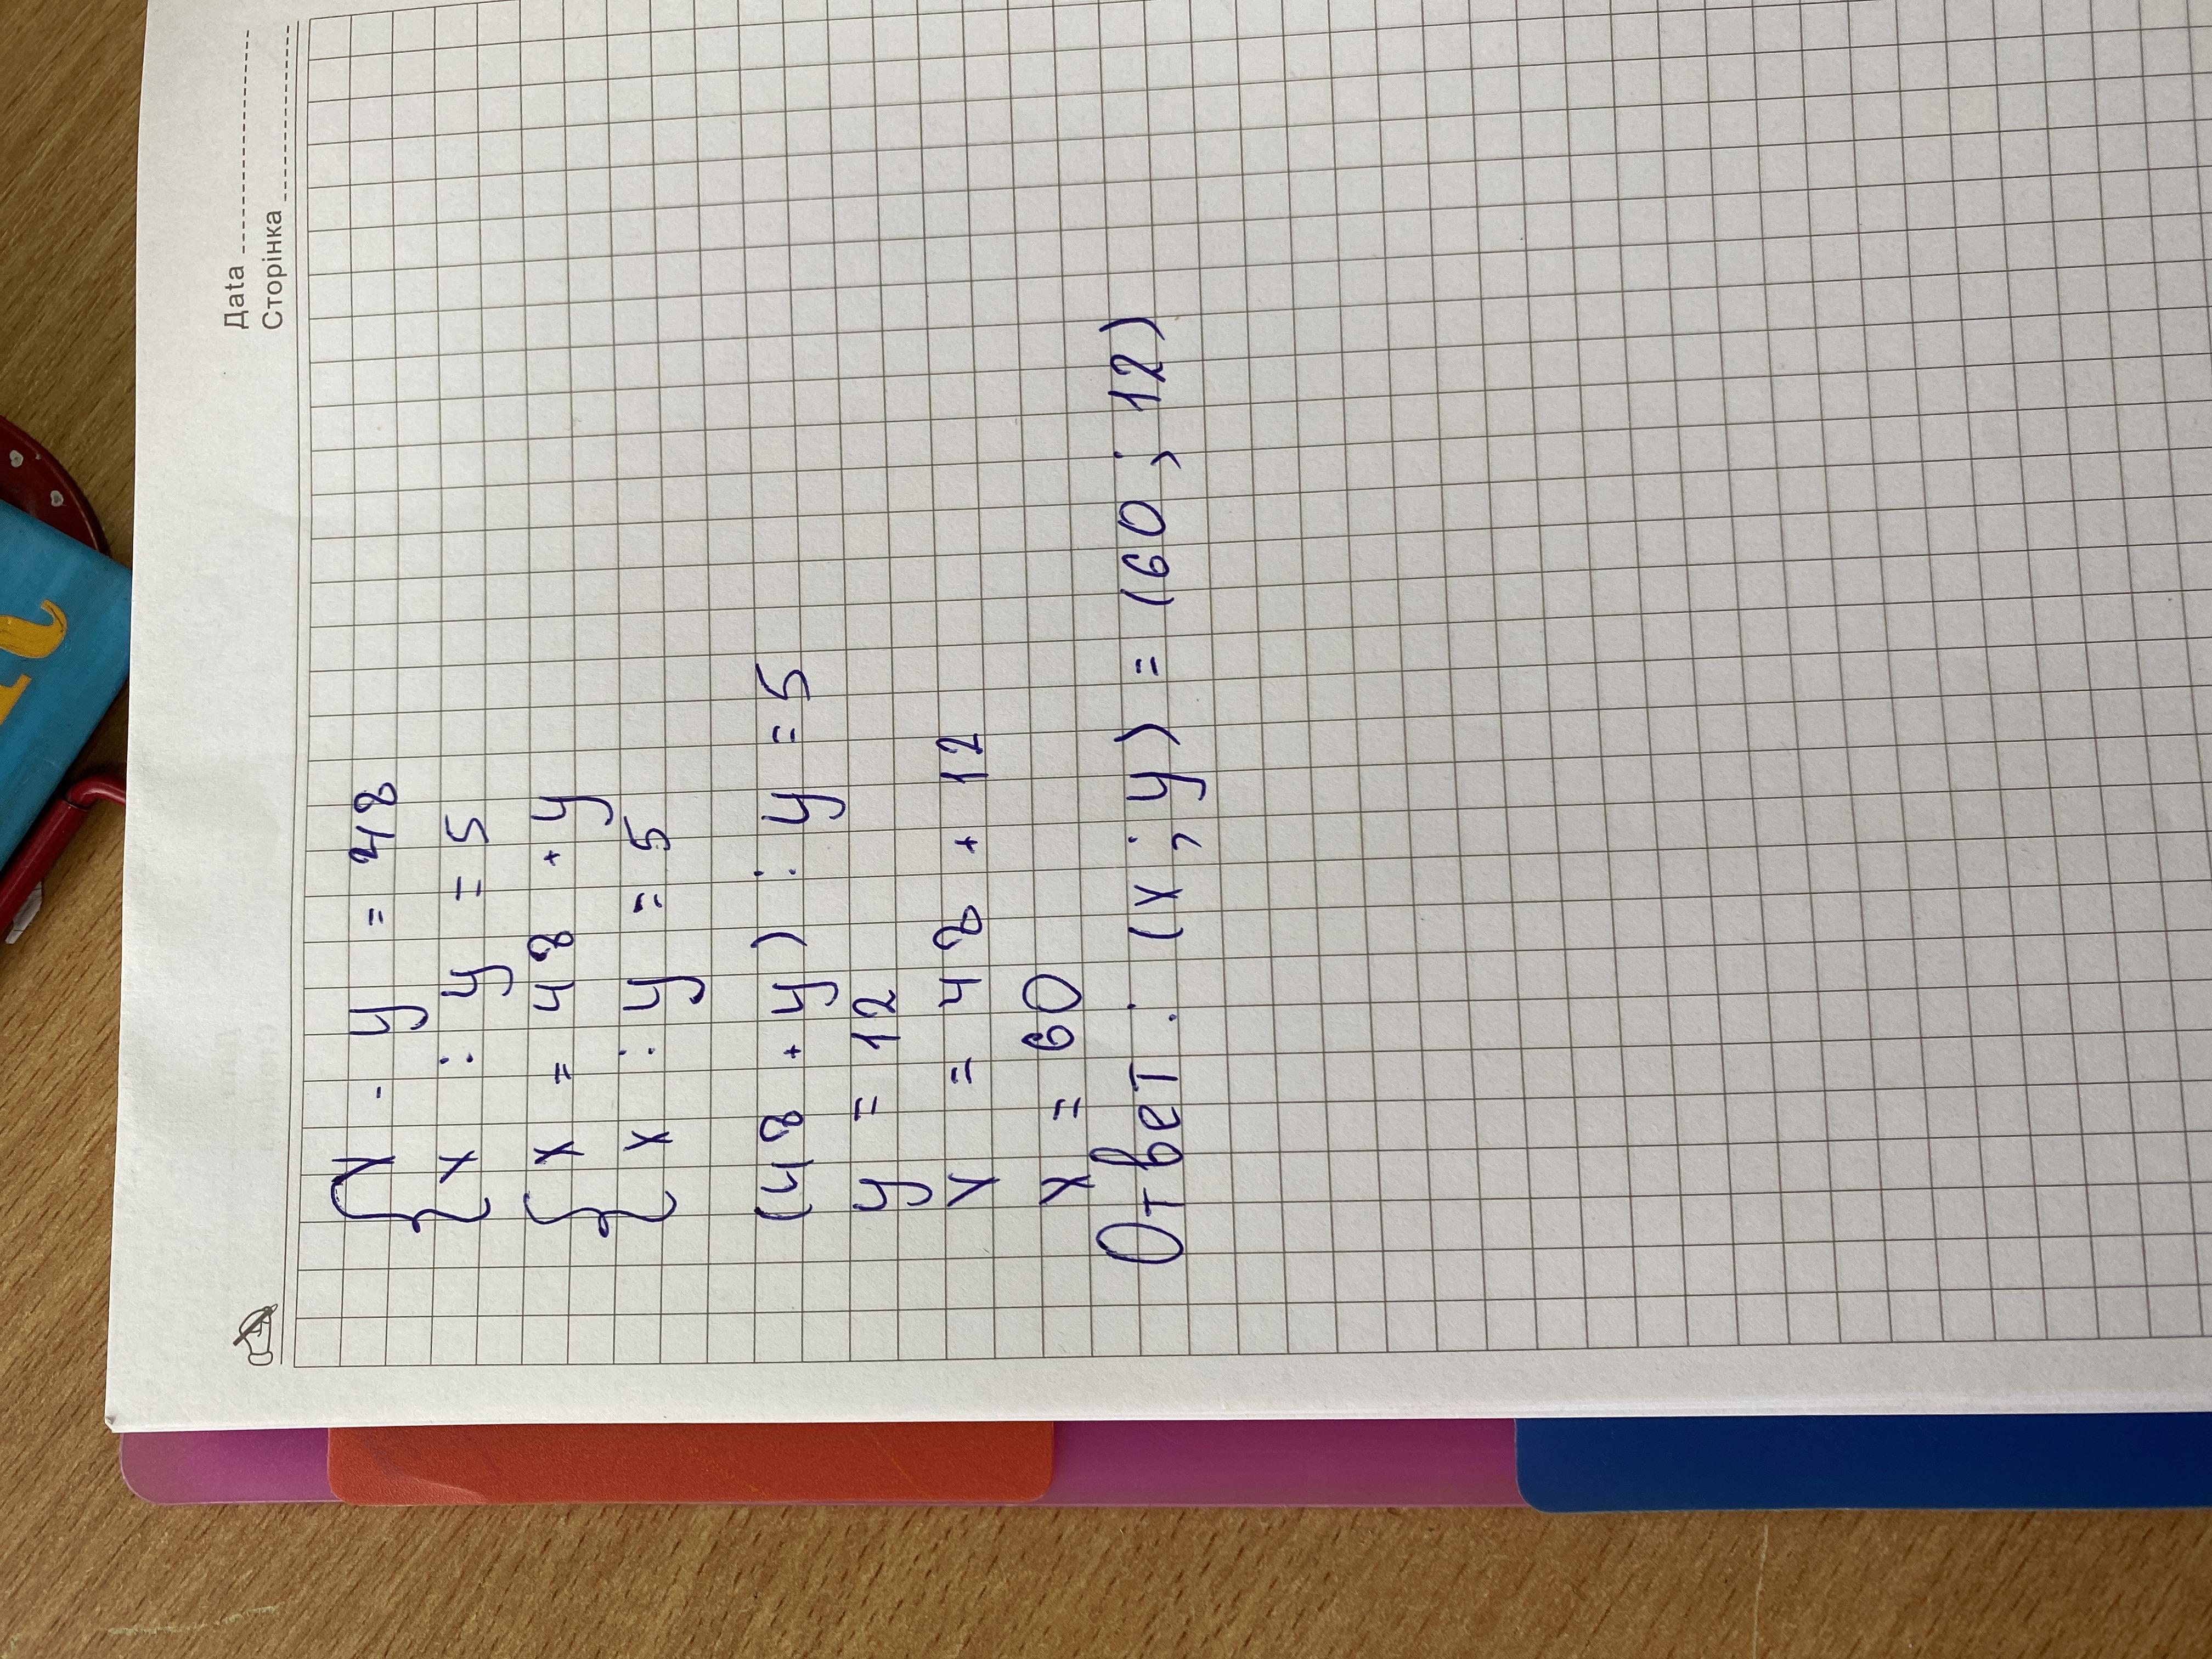 Дата
Сторінка
x - y = 48
x : y = 5
x = 48 + y
x : y = 5
(48 + y) : y = 5
y = 12
x = 48 + 12
x = 60
Ответ: (x; y) = (60; 12)
12